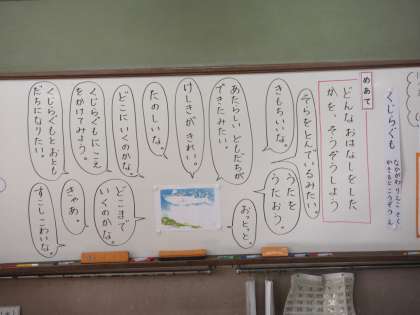 くじらぐも
なかがわ りえこ さく
かきもと こうぞう え
めあて
どんな おはなしをした
かを、そうぞうしよう
そらをとんでいるみたい。
きもちいいな。
うたを
うたおう。
あたらしいともだちが
できたみたい。
おっとっと。
けしきが きれい。
たのしいな。
どこに いくのかな。
どこまで
いくのかな。
くじらぐもにこえ
をかけてみよう。
きゃあ。
くじらぐもとおとも
だちになりたい!
すこしこわいな。